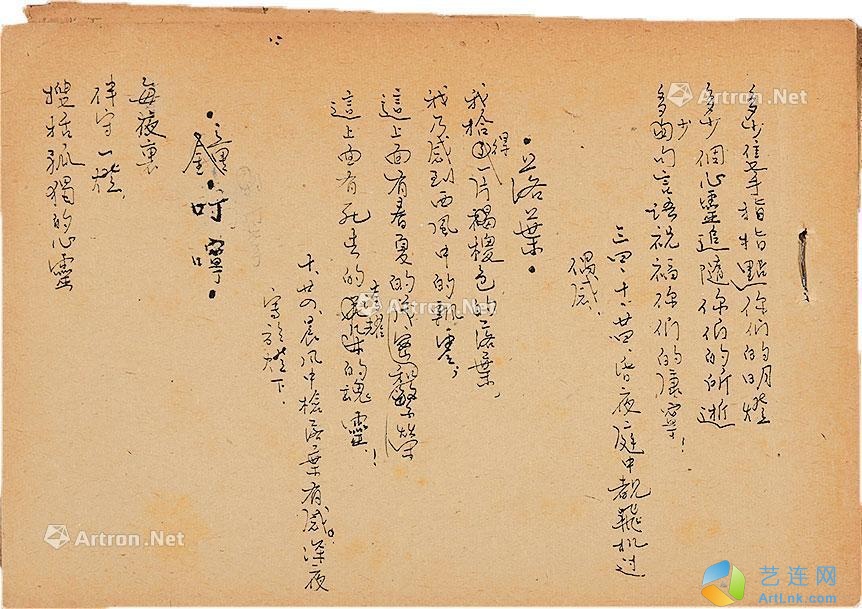 多少隻手指指點你們的明燈
多少個心靈追隨你們的所逝
多少句言語祝福你們的康寧！
三四、十、廿四、昏夜庭中觀飛机过
偶感．
·落葉·
我拾得一片褐棕色的落葉，
我乃感到西風中的飄零，
這上面有春夏的 繁榮
這上面有死去的 的魂靈！
十廿四、晨風中檢落葉有感。深夜
寫於燈下．
·鐘·叮嚀·
每夜裏
伴守一燈，
孤獨的心靈
Artron.Net
Artron.Net
Artron.Net
艺连网
ArtLnk.com